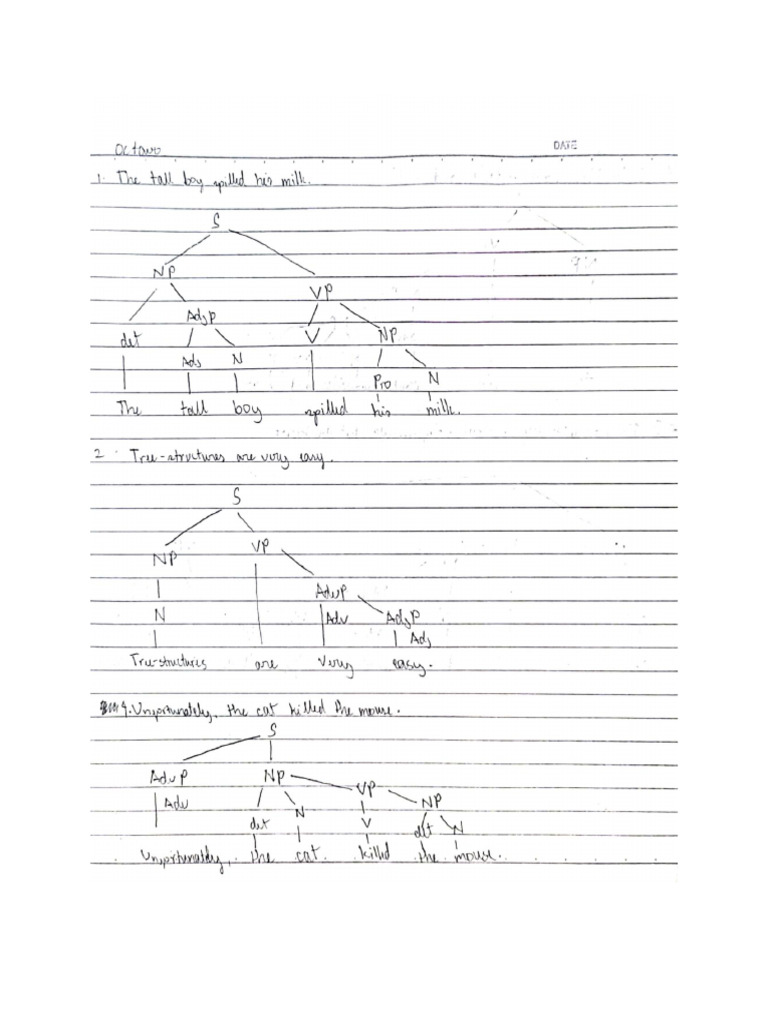 Octavo
DATE
1. The tall boy spilled his milk.
S
NP
VP
AdjP
det V NP
Adj N
Pro N
The tall boy spilled his milk.
2 Tree-structures are very easy.
S
NP VP
AdvP
N Adv AdjP
Adj
Tree-structures are very easy.
4. Unfortunately, the cat killed the mouse.
S
AdvP NP VP NP
Adv
det N V det N
Unfortunately, the cat killed the mouse.